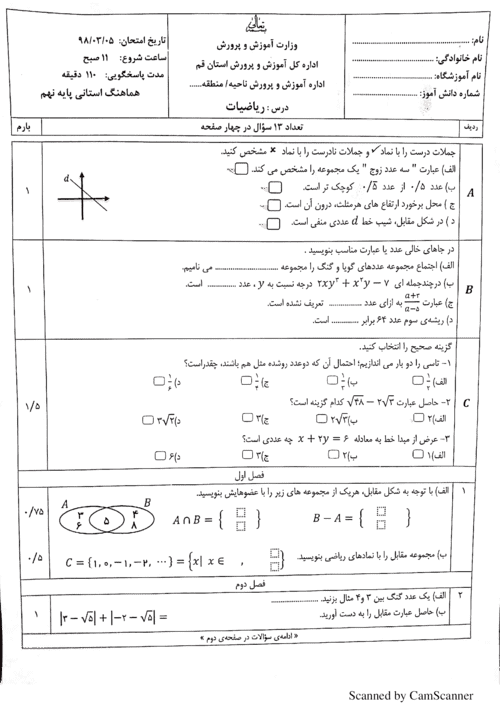 بسمه تعالی
نام: ........................
نام خانوادگی: ........................
نام آموزشگاه: ........................
شماره دانش آموز: ........................
وزارت آموزش و پرورش
اداره کل آموزش و پرورش استان قم
اداره آموزش و پرورش ناحیه/ منطقه......
درس : ریاضیات
تاریخ امتحان: ۹۸/۰۳/۰۵
ساعت شروع: ۱۱ صبح
مدت پاسخگویی: ۱۱۰ دقیقه
هماهنگ استانی پایه نهم
ردیف
تعداد ۱۳ سؤال در چهار صفحه
بارم
A
جملات درست را با نماد ✓ و جملات نادرست را با نماد × مشخص کنید.
الف) عبارت " سه عدد زوج " یک مجموعه را مشخص می کند.
ب) عدد ۰/۵ از عدد ۰/۵̅ کوچک تر است.
ج ) محل برخورد ارتفاع های هرمثلث، درون آن است.
د ) در شکل مقابل، شیب خط d عددی منفی است.
d
۱
B
در جاهای خالی عدد یا عبارت مناسب بنویسید .
الف) اجتماع مجموعه عددهای گویا و گنگ را مجموعه ........................ می نامیم.
ب) درچندجمله ای ۲xy³ + x²y − ۷ درجه نسبت به y ، عدد .............. است.
ج) عبارت (a+۲)/(a−۵) به ازای عدد .............. تعریف نشده است.
د) ریشه‌ی سوم عدد ۶۴ برابر .............. است.
۱
C
گزینه صحیح را انتخاب کنید.
۱- تاسی را دو بار می اندازیم؛ احتمال آن که دوعدد روشده مثل هم باشند، چقدراست؟
۲- حاصل عبارت √۴۸ − ۲√۳ کدام گزینه است؟
الف)۲ ب)۲√۳ ج)۳ د)۳√۲
۳- عرض از مبدا خط به معادله x + ۲y = ۶ چه عددی است؟
الف)۱ ب)۲ ج)۳ د)۶
۱/۵
فصل اول
۱
الف) با توجه به شکل مقابل، هریک از مجموعه های زیر را با عضوهایش بنویسید.
A B
۳ ۶ ۵ ۴ ۸
A ∩ B = { } B − A = { }
۰/۷۵
ب) مجموعه مقابل را با نمادهای ریاضی بنویسید.
C = {۱, ۰, −۱, −۲, ⋯} = {x| x ∈ , }
۰/۵
فصل دوم
۲
الف) یک عدد گنگ بین ۳ و ۴ مثال بزنید. ........................
ب) حاصل عبارت مقابل را به دست آورید.
|۳ − √۵| + |−۲ − √۵| =
۱
« ادامه‌ی سؤالات در صفحه‌ی دوم »
Scanned by CamScanner